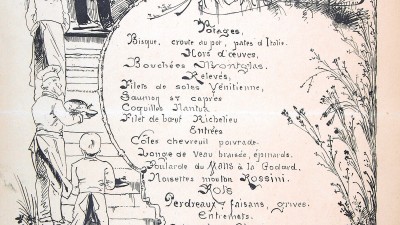 Potages.
Bisque, croute au pot, pates d'Italie.
Hors d'œuvres,
Bouchées Montglas.
Relevés,
Filets de soles Vénitienne,
Saumon st capres
Coquilles Nantua
Filet de bœuf Richelieu
Entrées
Côtes chevreuil poivrade.
Longe de veau braisée, épinards.
Poularde du Mans à la Godard,
Noisettes mouton Rossini.
Rots
Perdreaux - faisans, grives.
Entremets.